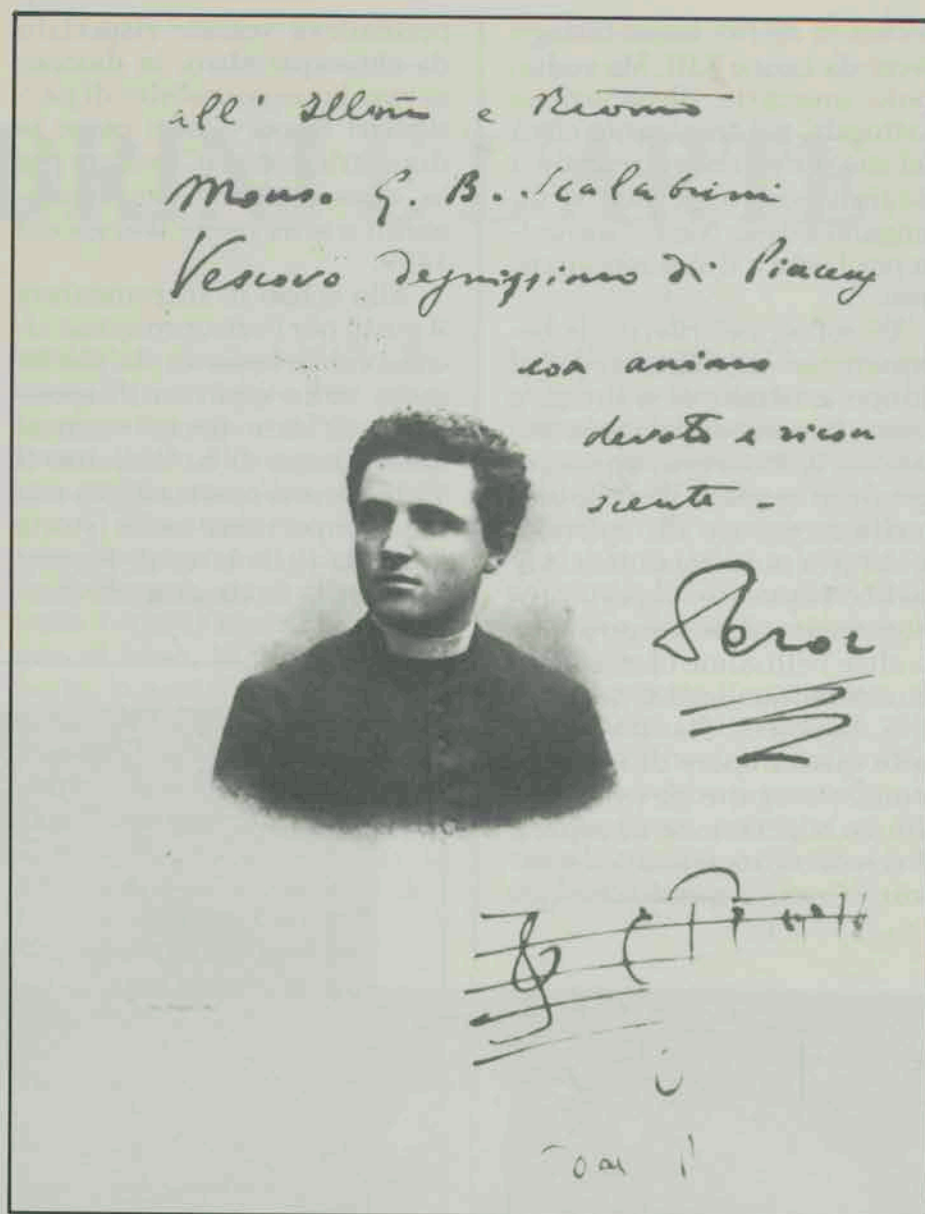 all' Illm̄o e Rev̄mo
Mons. G. B. Scalabrini
Vescovo degnissimo di Piacenz
con animo
devoto e ricon
scente -
Perosi